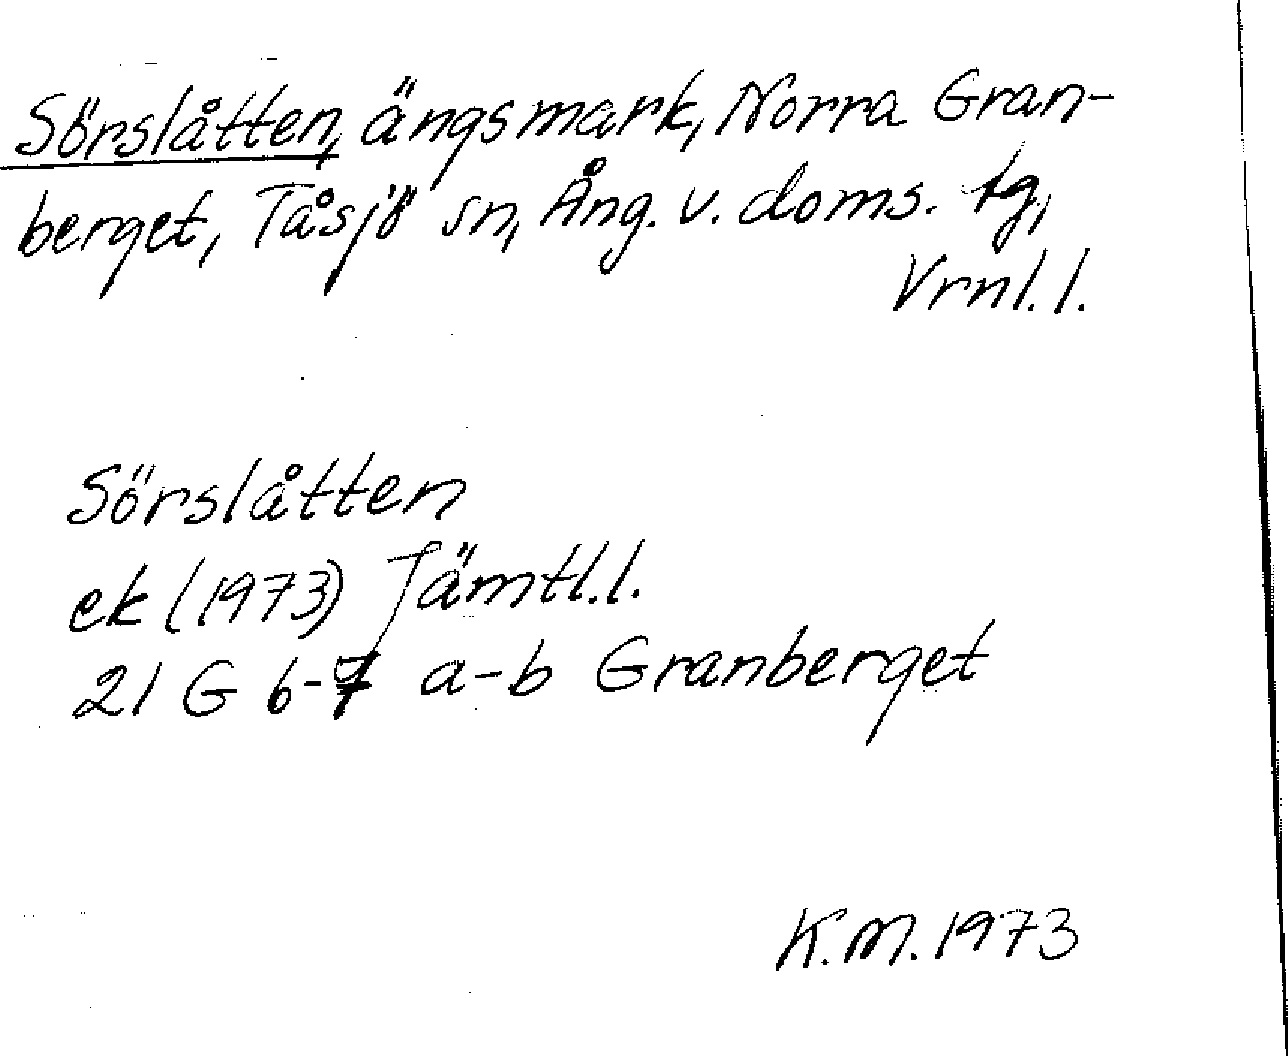 Sörslåtten, ängsmark, Norra Gran-
berget, Tåsjö sn, Ång. v. doms. tg,
Vrnl. l.
Sörslåtten
ek (1973) Jämtl. l.
21 G 6-7 a-b Granberget
K.M. 1973